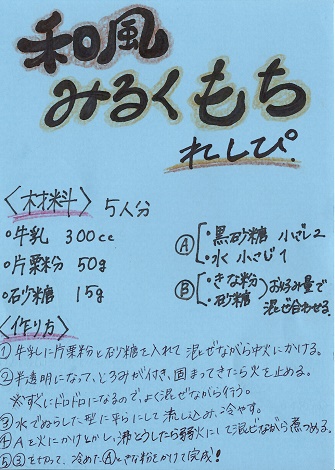 和風
みるくもち
れしぴ。
〈材料〉 5人分
・牛乳 300cc
・片栗粉 50g
・砂糖 15g
Ⓐ[・黒砂糖 小さじ2
・水 小さじ1
Ⓑ[・きな粉
・砂糖
)お好み量で
混ぜ合わせる。
〈作り方〉
①牛乳に片栗粉と砂糖を入れて混ぜながら中火にかける。
②半透明になって、とろみが付き、固まってきたら火を止める。
※すぐにドロドロになるので、よく混ぜながら行う。
③水でぬらした型に平らにして流し込み、冷やす。
④Aを火にかけとかし、沸とうしたら弱火にして混ぜながら煮つめる。
⑤③を切って、冷めたⒶときな粉をかけて完成!